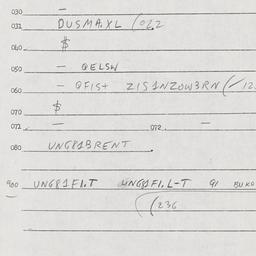 030 –
031 DUSMA.XL (022
040 $
050 – QELSW
060 – QFIS+ ZIS1NZOW3RN (✓12
070 $
071 – 072. –
080 UNG81BRENT.
400 UNG81FI.T UNG81FI.L-T 91 BUKO
(236